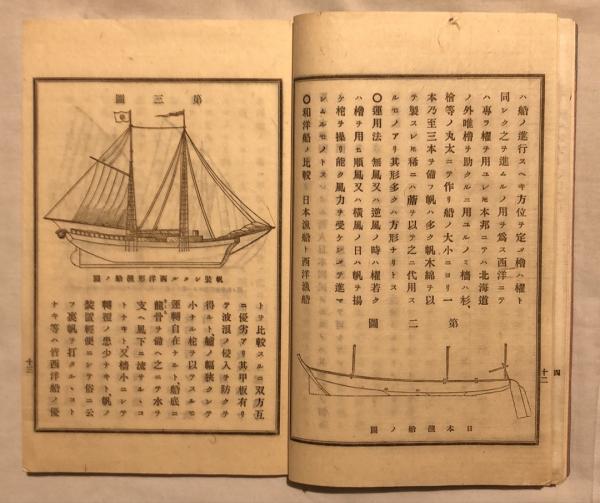 ハ船ノ進行スヘキ方位ヲ定メ櫓ハ櫂ト
同シク之ヲ進ムルノ用ヲ爲ス西洋ニテ
ハ專ヲ櫂ヲ用ユレ𪜈本邦ニテハ北海道
ノ外唯櫓ヲ助クルニ用ユルノミ檣ハ杉、
檜等ノ丸太ニテ作リ船ノ大小ニヨリ一
本乃至三本ヲ備フ帆ハ多ク帆木綿ヲ以
テ製スレ𪜈稀ニハ蓆ヲ以テ之ニ代用ス
ルモノアリ其形多クハ方形ナリトス
〇運用法 無風又ハ逆風ノ時ハ櫂若ク
ハ櫓ヲ用ヒ順風又ハ横風ノ日ハ帆ヲ揚
ケ柁ヲ操リ能ク風力ヲ受ケシメテ進マ
シムルモノトス
〇和洋船ノ比較 日本漁船ト西洋漁船
第二圖
日本漁船ノ圖
四
十二
第三圖
帆裝シタル西洋形漁船ノ圖
トヲ比較スルニ双方互
ニ優劣アリ其甲板有リ
テ波浪ノ侵入ヲ防クヲ
得ルト、艫ノ幅狹クシテ
小ナル柁ヲ以テスルモ
運轉自在ナルト、船底ニ
龍骨ヲ備ヘ之ニテ水ヲ
支ヘ風下ニ流サルヽコ
トナキト又檣小ニシテ
轉覆ノ患少ナキト帆ノ
裝置輕便ニシテ俗ニ云
フ裏帆ヲ打タルヽコト
ナキ等ハ皆西洋船ノ優
十三